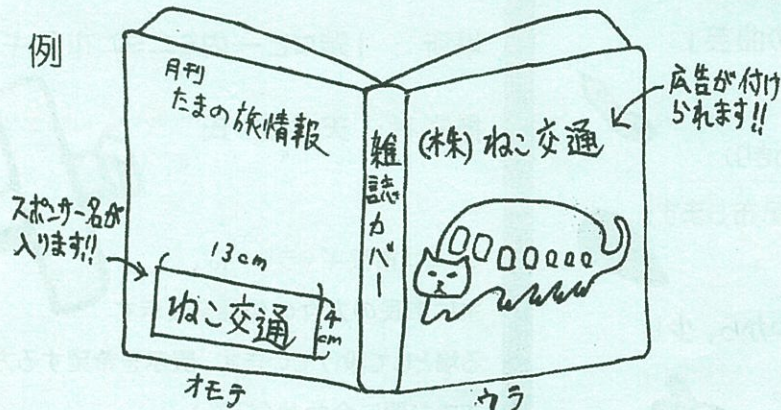 例
月刊
たまの旅情報
スポンサー名が
入ります!!
13cm
ねこ交通
4cm
オモテ
雑誌カバー
(株)ねこ交通
広告が付け
られます!!
ウラ